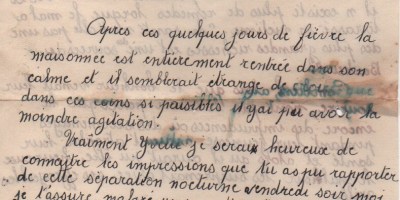 Apres ces quelques jours de fièvre la
maisonnée est entièrement rentrée dans son
calme et il semblerait étrange de
dans ces coins si paisibles il y ai pu avoir la
moindre agitation.
Vraiment Yvette je serais heureux de
connaître les impressions que tu as pu rapporter
de cette séparation nocturne vendredi soir moi
je t'assure malgré